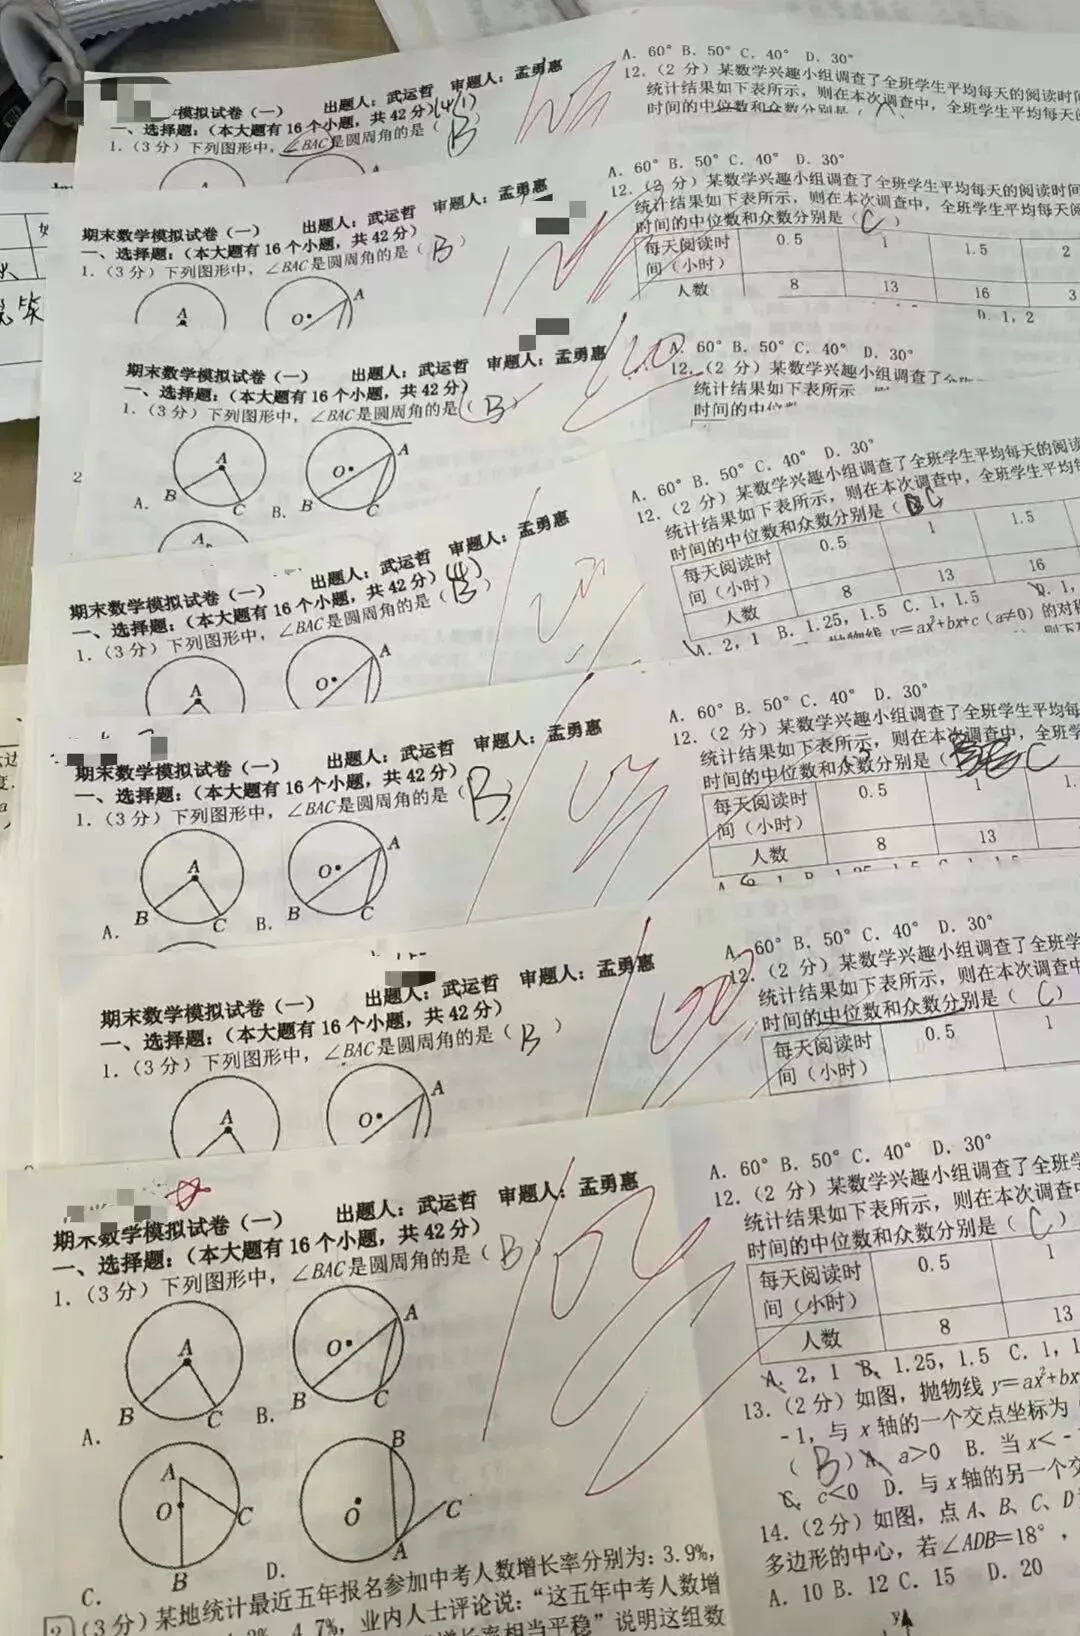 模拟试卷（一） 出题人：武运哲 审题人：孟勇惠
一、选择题：（本大题有16个小题，共42分）(41)
1.（3分）下列图形中，∠BAC是圆周角的是（ B
A
A. 60° B. 50° C. 40° D. 30°
12.（2分）某数学兴趣小组调查了全班学生平均每天的阅读时间
统计结果如下表所示，则在本次调查中，全班学生平均每天
时间的中位数和众数分别是（
期末数学模拟试卷（一） 出题人：武运哲 审题人：孟勇惠
一、选择题：（本大题有16个小题，共42分）
1.（3分）下列图形中，∠BAC是圆周角的是（ B ）
A
O A
A. 60° B. 50° C. 40° D. 30°
12.（2分）某数学兴趣小组调查了全班学生平均每天的阅读时间
统计结果如下表所示，则在本次调查中，全班学生平均每天阅
时间的中位数和众数分别是（ C ）
每天阅读时 0.5 1 1.5 2
间（小时）
人数 8 13 16 3
D. 1，2
期末数学模拟试卷（一） 出题人：武运哲 审题人：孟勇惠
一、选择题：（本大题有16个小题，共42分）
1.（3分）下列图形中，∠BAC是圆周角的是（ B ）
A O A
A. B C B. B C
A
2
A. 60° B. 50° C. 40° D. 30°
12.（2分）某数学兴趣小组调查了
统计结果如下表所示
时间的中位
期末数学模拟试卷（一） 出题人：武运哲 审题人：孟勇惠
一、选择题：（本大题有16个小题，共42分）
1.（3分）下列图形中，∠BAC是圆周角的是（ B ）
A O A
A. 60° B. 50° C. 40° D. 30°
12.（2分）某数学兴趣小组调查了全班学生平均每天的阅读
统计结果如下表所示，则在本次调查中，全班学生平均每
时间的中位数和众数分别是（ C
每天阅读时 0.5 1 1.5
间（小时）
人数 8 13 16
A. 2，1 B. 1.25，1.5 C. 1，1.5 D. 1，
抛物线 y=ax²+bx+c（a≠0）的对称
期末数学模拟试卷（一） 出题人：武运哲 审题人：孟勇惠
一、选择题：（本大题有16个小题，共42分）
1.（3分）下列图形中，∠BAC是圆周角的是（ B
A O A
A. B C B. B C
A. 60° B. 50° C. 40° D. 30°
12.（2分）某数学兴趣小组调查了全班学生平均每
统计结果如下表所示，则在本次调查中，全班学
时间的中位数和众数分别是（ C
每天阅读时 0.5 1 1.
间（小时）
人数 8 13
期末数学模拟试卷（一） 出题人：武运哲 审题人：孟勇惠
一、选择题：（本大题有16个小题，共42分）
1.（3分）下列图形中，∠BAC是圆周角的是（ B ）
A O A
A. 60° B. 50° C. 40° D. 30°
12.（2分）某数学兴趣小组调查了全班学
统计结果如下表所示，则在本次调查中
时间的中位数和众数分别是（ C ）
每天阅读时 0.5 1
间（小时）
期末数学模拟试卷（一） 出题人：武运哲 审题人：孟勇惠
一、选择题：（本大题有16个小题，共42分）
1.（3分）下列图形中，∠BAC是圆周角的是（ B ）
A O A
A. B C B. B C
A O C B O A C
C. B D.
2（3分）某地统计最近五年报名参加中考人数增长率分别为：3.9%，
4.7%，业内人士评论说：“这五年中考人数增
增长率相当平稳”说明这组数
A. 60° B. 50° C. 40° D. 30°
12.（2分）某数学兴趣小组调查了全班学
统计结果如下表所示，则在本次调查中
时间的中位数和众数分别是（ C ）
每天阅读时 0.5 1
间（小时）
人数 8 13
A. 2，1 B. 1.25，1.5 C. 1，1
13.（2分）如图，抛物线 y=ax²+bx
-1，与 x 轴的一个交点坐标为（
（ B ）A. a>0 B. 当 x<-
C. c<0 D. 与 x 轴的另一个交
14.（2分）如图，点 A、B、C、D
多边形的中心，若∠ADB=18°，
A. 10 B. 12 C. 15 D. 20
y